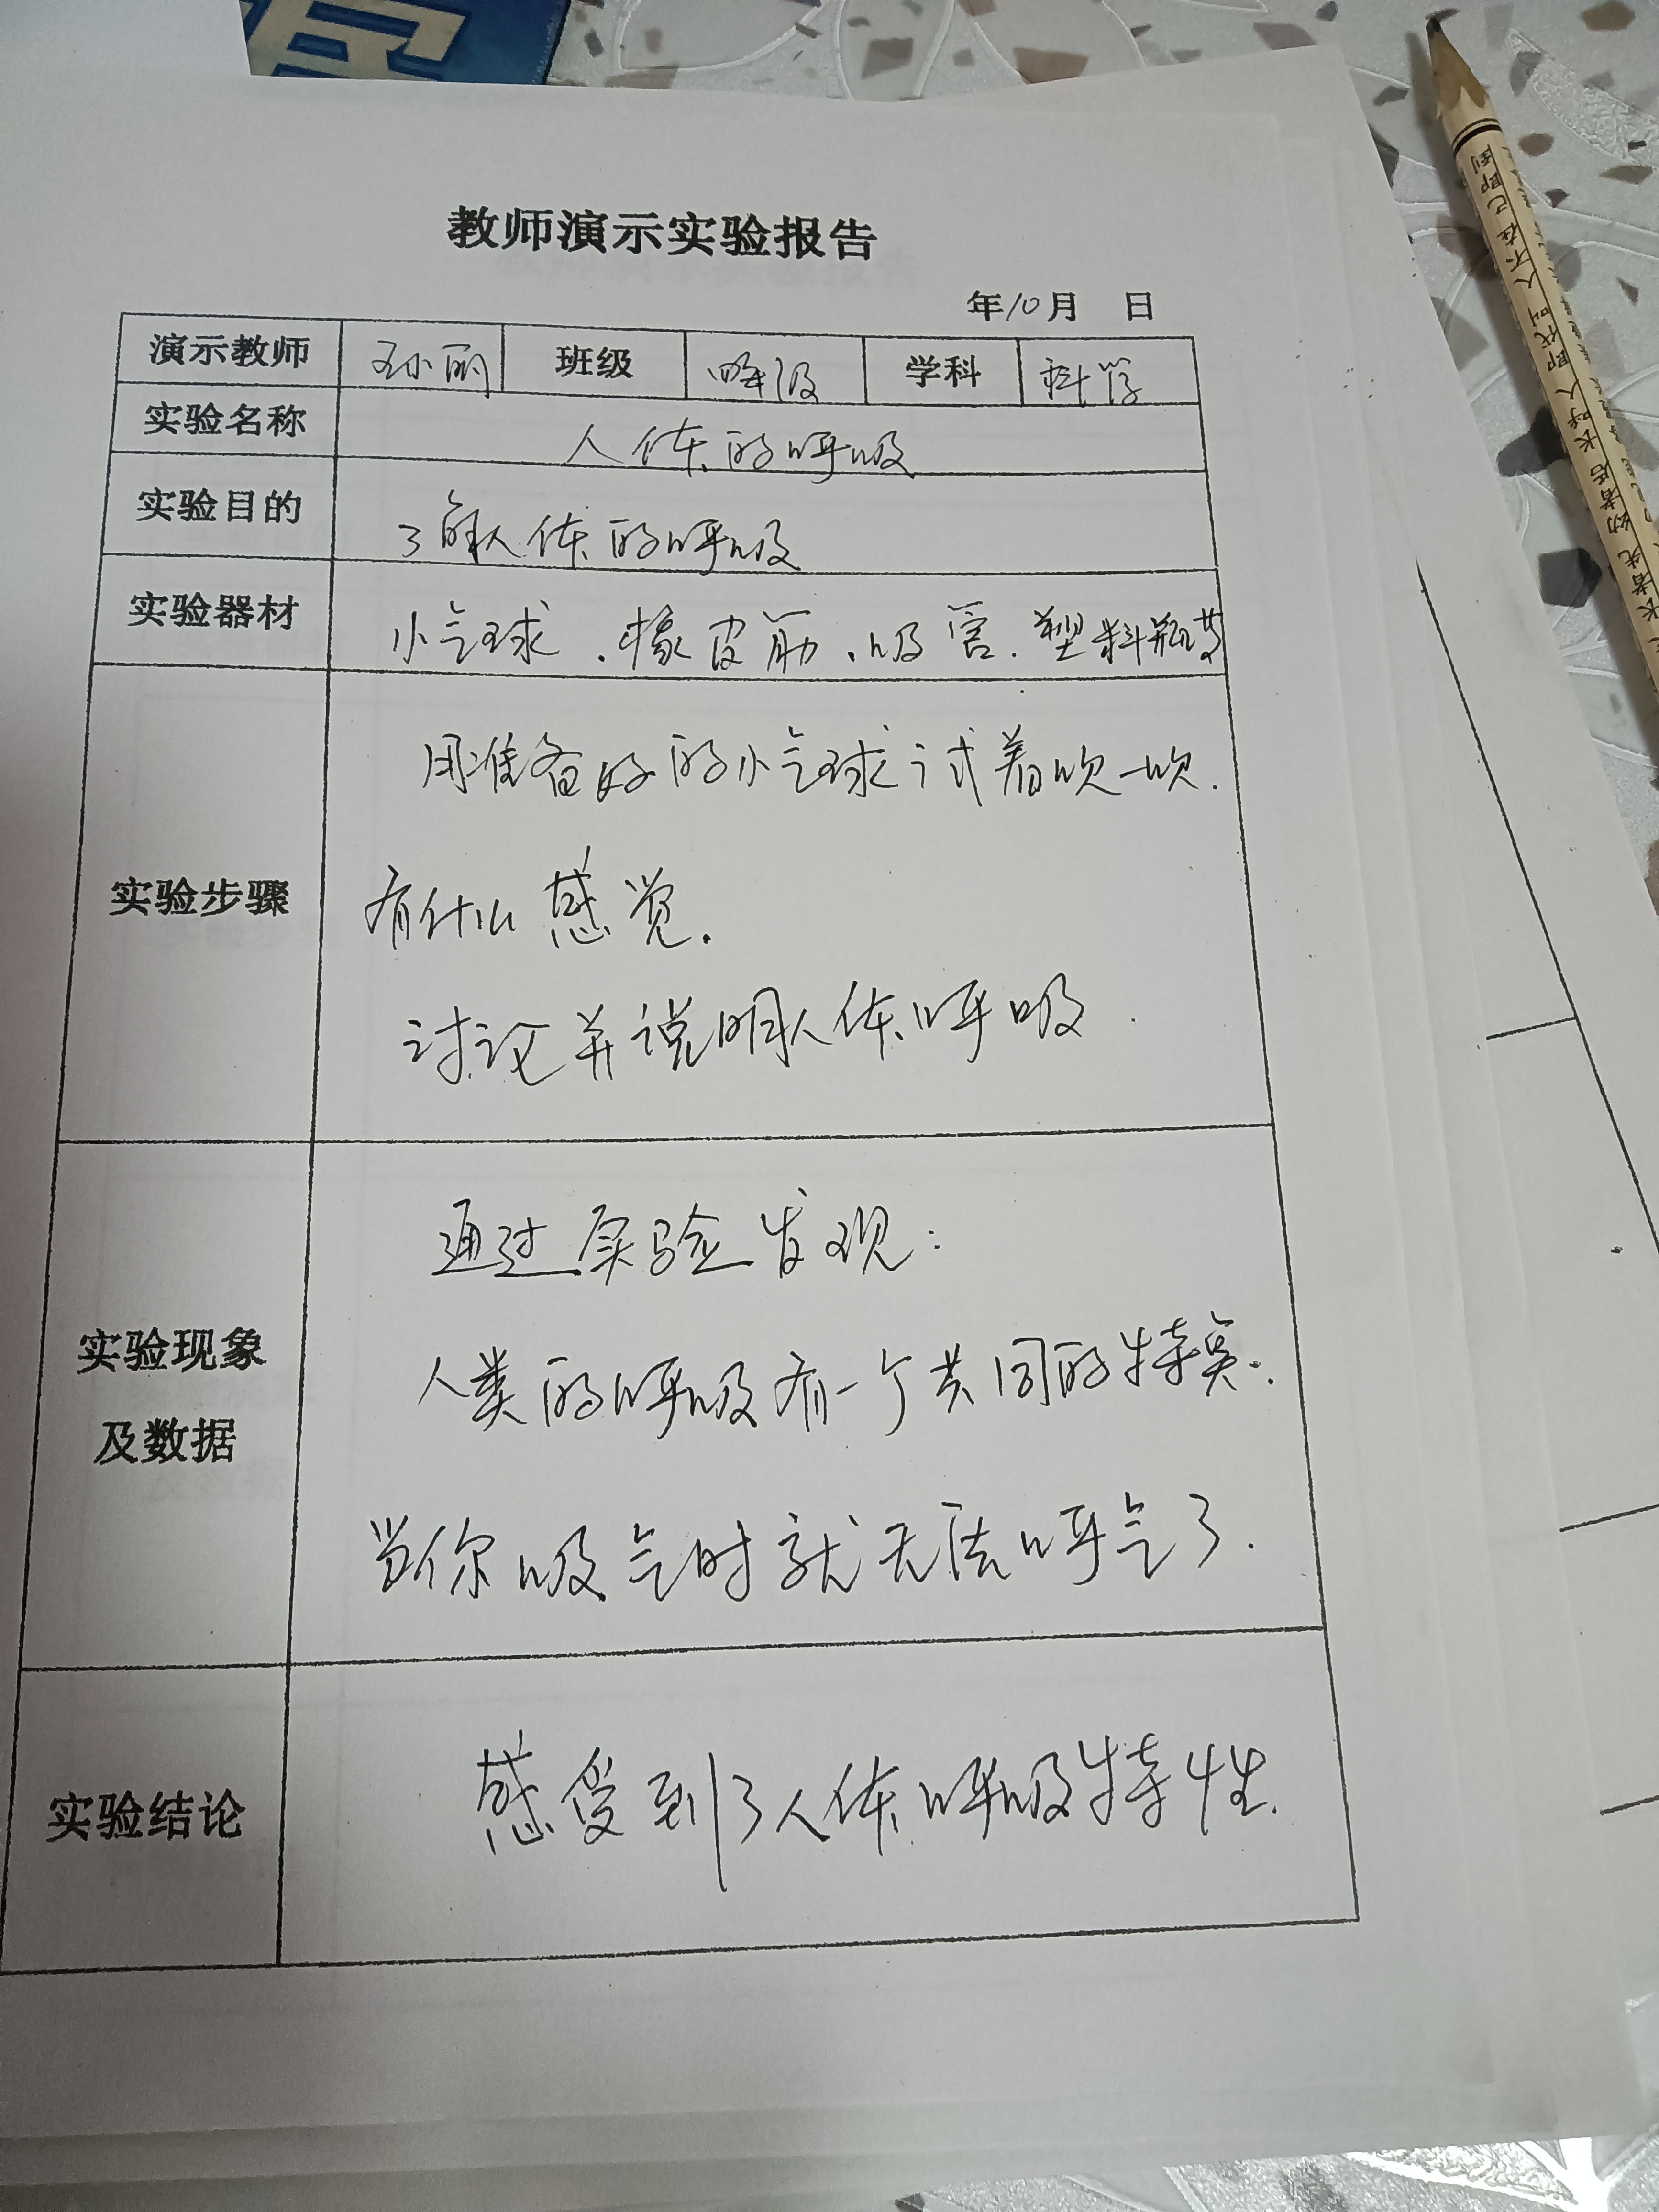 教师演示实验报告
年10月 日
演示教师 王小丽 班级 四年级 学科 科学
实验名称 人体的呼吸
实验目的 了解人体的呼吸
实验器材 小气球、橡皮筋、吸管、塑料瓶等
用准备好的小气球试着吹一吹.
实验步骤 有什么感觉.
讨论并说明人体呼吸.
通过实验发现:
实验现象 人类的呼吸有一个共同的特点.
及数据
当你吸气时就无法呼气了.
实验结论 感受到了人体呼吸特性.
长者先 幼者后 长呼人 即代叫 人不在 己即到